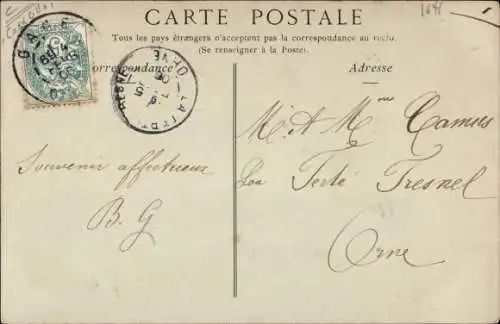 1646
CARTE POSTALE
Tous les pays étrangers n'acceptent pas la correspondance au recto.
(Se renseigner à la Poste).
Correspondance
Adresse
GACÉ
LA FERTÉ FRESNEL
ORNE
Souvenir affectueux
B. G
M. & Mme Camus
La Ferté Fresnel
Orne